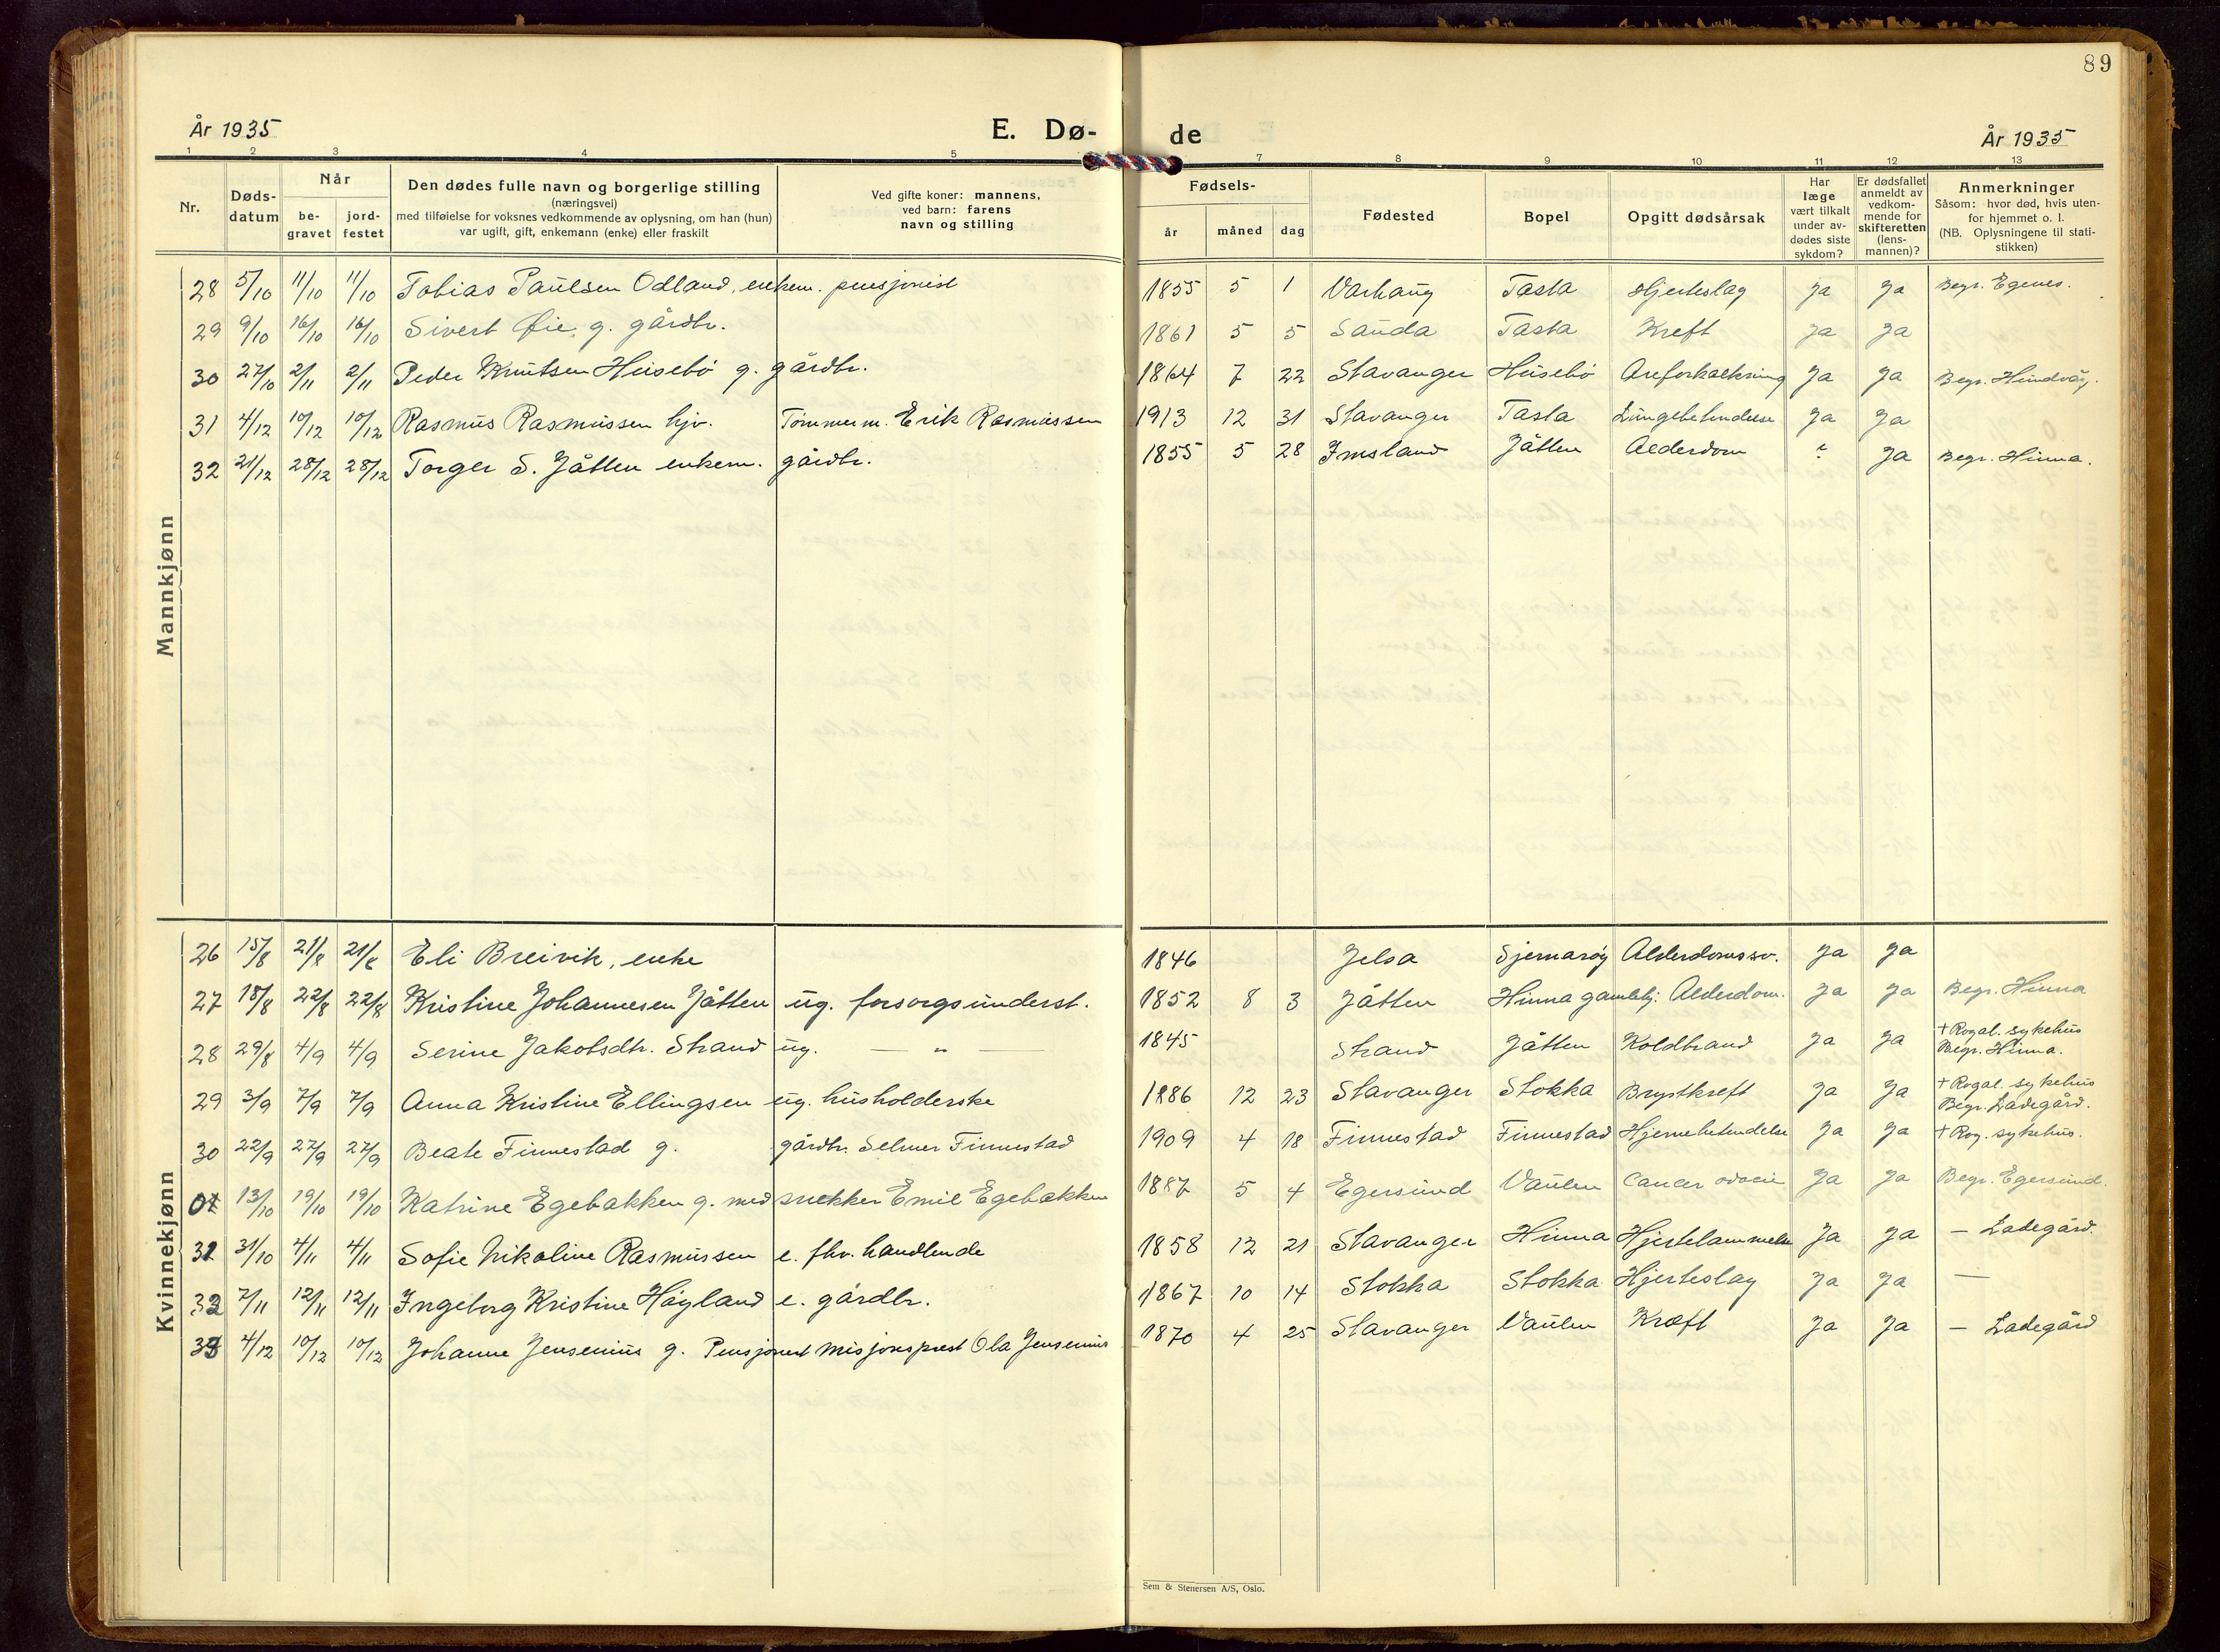 89
År 1935 E. Dø- de År 1935
1 2 3 4 5 7 8 9 10 11 12 13
Nr. Døds-datum Når be-gravet jord-festet Den dødes fulle navn og borgerlige stilling (næringsvei) med tilføielse for voksnes vedkommende av oplysning, om han (hun) var ugift, gift, enkemann (enke) eller fraskilt Ved gifte koner: mannens, ved barn: farens navn og stilling Fødsels- år måned dag Fødested Bopel Opgitt dødsårsak Har læge vært tilkalt under av-dødes siste sykdom? Er dødsfallet anmeldt av vedkom-mende for skifteretten (lens-mannen)? Anmerkninger Såsom: hvor død, hvis uten-for hjemmet o. l. (NB. Oplysningene til stati-stikken)
Mannkjønn
28 5/10 11/10 11/10 Tobias Paulsen Odland, enkem. pensjonist 1855 5 1 Varhaug Tasta Hjerteslag ja ja Begr. Egenes.
29 9/10 16/10 16/10 Sivert Øie g. gårdbr. 1861 5 5 Sauda Tasta Kreft ja ja
30 27/10 2/11 2/11 Peder Knutsen Husebø g. gårdbr. 1864 7 22 Stavanger Husebø Areforkalkning ja ja Begr. Hundvåg.
31 4/12 10/12 10/12 Rasmus Rasmussen hjv. Tømmerm. Erik Rasmussen 1913 12 31 Stavanger Tasta Lungebetendelse ja ja
32 21/12 28/12 28/12 Torger S. Jåtten enkem. gårdbr. 1855 5 28 Imsland Jåtten Alderdom ? ja Begr. Hinna.
Kvinnekjønn
26 15/8 21/8 21/8 Eli Breivik, enke 1846 Jelsa Sjernarøy Alderdomssv. ja ja
27 18/8 22/8 22/8 Kristine Johannesen Jåtten ug. forsorgsunderst. 1852 8 3 Jåtten Hinna gamlehj. Alderdom. ja ja Begr. Hinna
28 29/8 4/9 4/9 Serine Jakobsdtr. Strand ug. — " — 1845 Strand Jåtten Koldbrand ja ja + Rogal. sykehus Begr. Hinna.
29 3/9 7/9 7/9 Anna Kristine Ellingsen ug. husholderske 1886 12 23 Stavanger Stokka Brystkreft ja ja + Rogal. sykehus Begr. Ladegård.
30 22/9 27/9 27/9 Beate Finnestad g. gårdbr. Selmer Finnestad 1909 4 18 Finnestad Finnestad Hjernebetendelse ja ja + Rog. sykehus.
13/10 19/10 19/10 Katrine Egebakken g. med snekker Emil Egebakken 1887 5 4 Egersund Vaulen Cancer ja ja Begr. Egersund.
31/10 4/11 4/11 Sofie Nikoline Rasmussen e. fhv. handlende 1858 12 21 Stavanger Hinna Hjertelammelse ja ja — Ladegård.
32 7/11 12/11 12/11 Ingeborg Kristine Høyland e. gårdbr. 1867 10 14 Stokka Stokka Hjerteslag ja ja —
33 4/12 10/12 10/12 Johanne Jensenius g. Pensjonert misjonsprest Ola Jensenius 1870 4 25 Stavanger Vaulen Kræft ja ja — Ladegård
Sem & Stenersen A/S, Oslo.